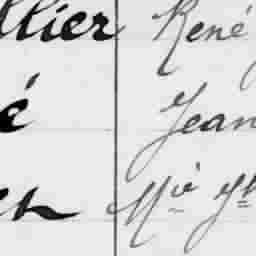 llier René
é Jean
Mie Yv